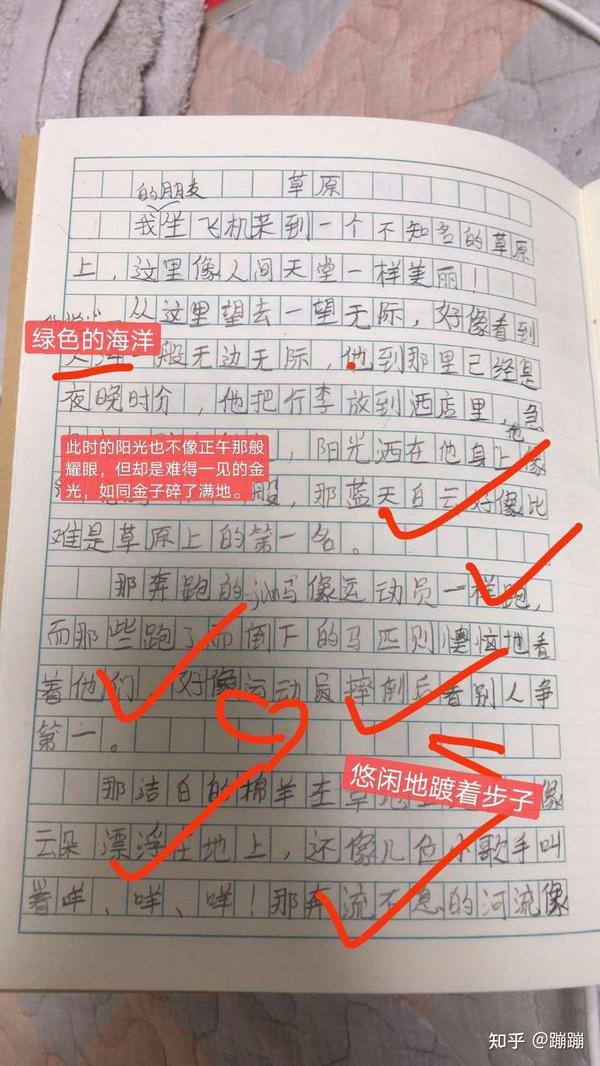 的朋友
草原
我坐飞机来到一个不知名的草原
上，这里像人间天堂一样美丽！
从这里望去一望无际，好像看到
绿色的海洋
一般无边无际，他到那里已经是
夜晚时分，他把行李放到酒店里，急
此时的阳光也不像正午那般
耀眼，但却是难得一见的金
光，如同金子碎了满地。
他
，阳光洒在他身上像
般，那蓝天白云好像比
难是草原上的第一名。
那奔跑的jùn马像运动员一样跑，
而那些跑了而倒下的马匹则懊恼地看
着他们，好像运动员摔倒后看别人争
第一。
悠闲地踱着步子
那洁白的棉羊在草地上像
云朵漂浮在地上，还像几位小歌手叫
着咩、咩、咩！那奔流不息的河流像
知乎 @蹦蹦